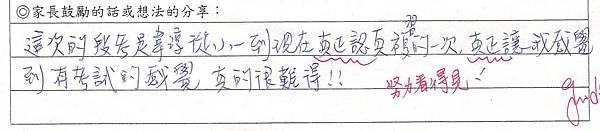 ◎家長鼓勵的話或想法的分享：
這次的段考是韋淳從小一到現在真正認真複習的一次，真正讓我感覺
到有考試的感覺 真的很難得!!
努力看得見!
good!